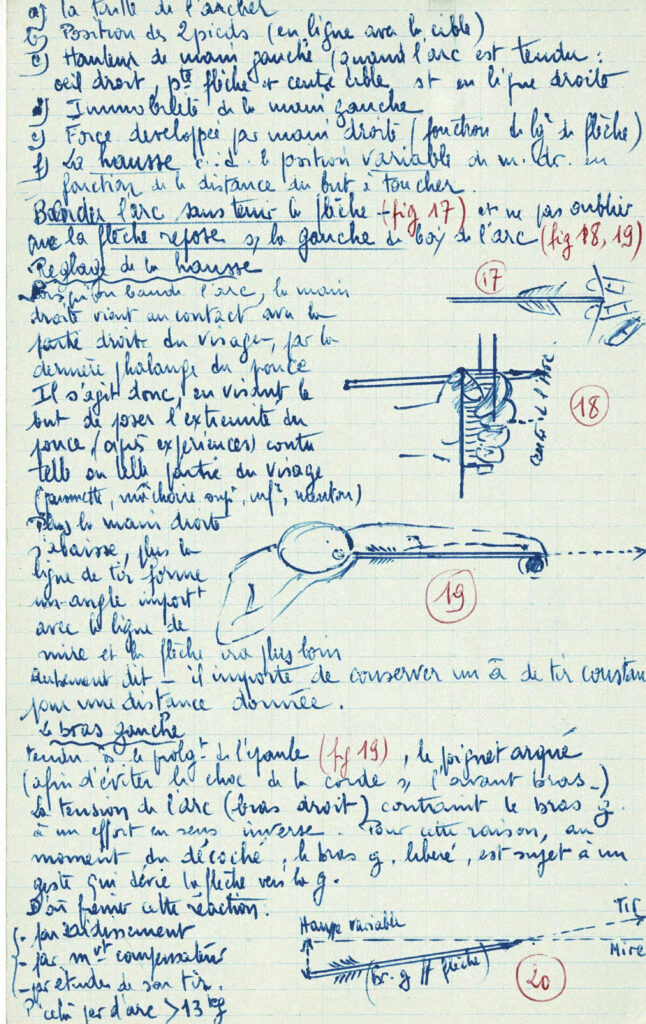 a) la taille de l'archer
b) Position des 2 pieds (en ligne avec la cible)
c) Hauteur de main gauche (quand l'arc est tendu :
oeil droit, pte flèche et centre cible st en ligne droite
d) Immobilité de la main gauche
e) Force développée par main droite (fonction de lgr de flèche)
f) La hausse c.à.d. la position variable de m. dr. en
fonction de la distance du but à toucher.
Bander l'arc sans tenir la flèche - (fig 17) et ne pas oublier
que la flèche repose s/ la gauche du bois de l'arc (fig 18, 19)
Réglage de la hausse
Lorsqu'on bande l'arc, la main
droite vient au contact avec la
partie droite du visage, par la
dernière phalange du pouce
Il s'agit donc, en visant le
but de poser l'extrémité du
pouce, (après expériences) contre
telle ou telle partie du visage
(pommette, mâchoire supr, infr, menton)
Plus la main droite
s'abaisse, plus la
ligne de tir forme
un angle importt
avec la ligne de
mire et la flèche ira plus loin
autrement dit - il importe de conserver un â de tir constant
pour une distance donnée.
Le bras gauche
tendu ds le prolgt de l'épaule (fig 19), le poignet arqué
(afin d'éviter le choc de la corde s/ l'avant bras -)
La tension de l'arc (bras droit) contraint le bras g.
à un effort en sens inverse. Pour cette raison, au
moment du décoché, le bras g. libéré, est sujet à un
geste qui dévie la flèche vers la g.
D'où freiner cette réaction.
- par raidissement
- par mvt compensateur
- par études de son tir.
13 kg
17
18
Centre de l'Arc
19
Hausse variable
Tir
Mire
(br. g // flèche)
20